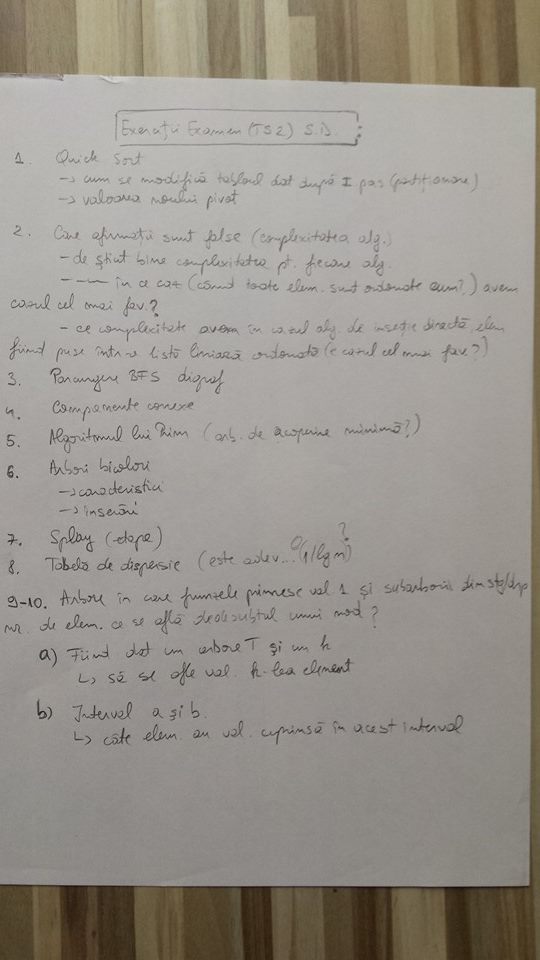 Exerciții Examen (TS2) S.D.
1. Quick Sort
→ cum se modifică tabloul dat după I pas (partiționare)
→ valoarea noului pivot
2. Care afirmații sunt false (complexitatea alg.)
- de știut bine complexitatea pt. fiecare alg.
- —— în ce caz (când toate elem. sunt ordonate cum?) avem
cazul cel mai fav.?
- ce complexitate avem în cazul alg. de inserție directă, elem
fiind puse într-o listă liniară ordonată (e cazul cel mai fav.?)
3. Parcurgere BFS digraf
4. Componente conexe
5. Algoritmul lui Prim (arb. de acoperire minimă?)
6. Arbori bicolori
→ caracteristici
→ inserări
7. Splay (etape)
8. Tabela de dispersie (este adev... O(1/lg n)?
9-10. Arbore în care frunzele primesc val. 1 și subarborii din stg/drp
nr. de elem. ce se află dedesubtul unui nod?
a) Fiind dat un arbore T și un k
↳ să se afle val. k-lea element
b) Interval a și b.
↳ câte elem. au val. cuprinsă în acest interval